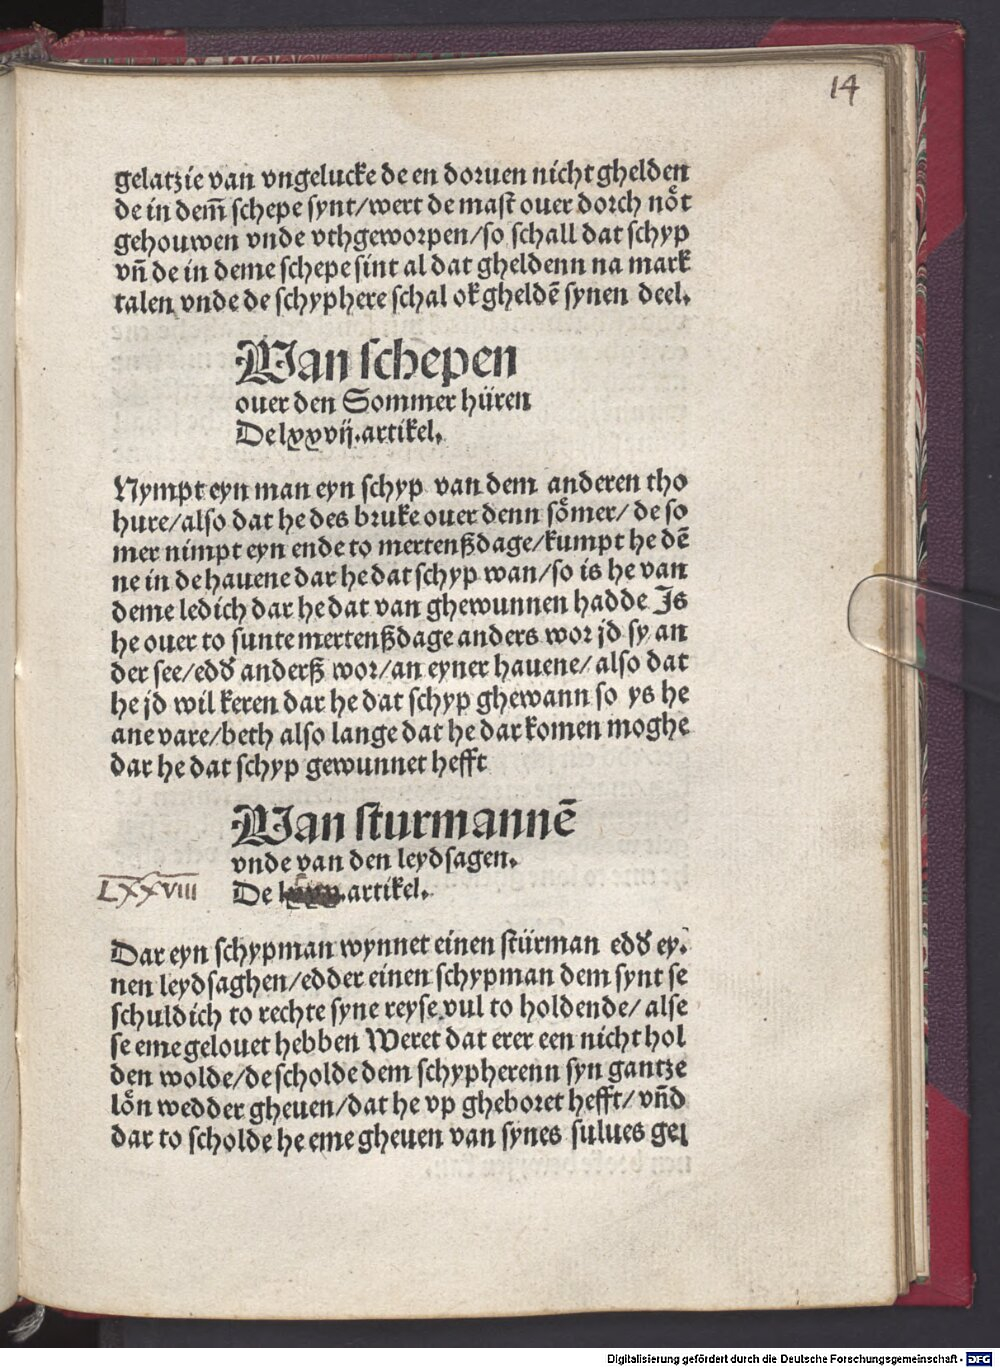 14
gelatzie van vngelucke de en doruen nicht ghelden
de in dem̄ schepe synt/wert de mast ouer dorch nöt
gehouwen vnde vthgeworpen/so schall dat schyp
vn̄ de in deme schepe sint al dat gheldenn na mark
talen vnde de schyphere schal ok gheldē synen deel.
Van schepen
ouer den Sommer hüren
De lxxvij.artikel.
Nympt eyn man eyn schyp van dem anderen tho
hure/also dat he des bruke ouer denn sömer/ de so
mer nimpt eyn ende to mertenßdage/kumpt he dē
ne in de hauene dar he dat schyp wan/so is he van
deme ledich dar he dat van ghewunnen hadde Js
he ouer to sunte mertenßdage anders wor jd sy an
der see/edď anderß wor/an eyner hauene/ also dat
he jd wil keren dar he dat schyp ghewann so ys he
ane vare/beth also lange dat he dar komen moghe
dar he dat schyp gewunnet hefft
Van sturmannē
vnde van den leydsagen.
LXXVIII
De .artikel.
Dar eyn schypman wynnet einen stürman edď ey.
nen leydsaghen/edder einen schypman dem synt se
schuldich to rechte syne reyse vul to holdende/ alse
se eme gelouet hebben Weret dat erer een nicht hol
den wolde/de scholde dem schypherenn syn gantze
lön wedder gheuen/dat he vp gheboret hefft/ vn̄d
dar to scholde he eme gheuen van synes sulues gel
Digitalisierung gefördert durch die Deutsche Forschungsgemeinschaft - DFG